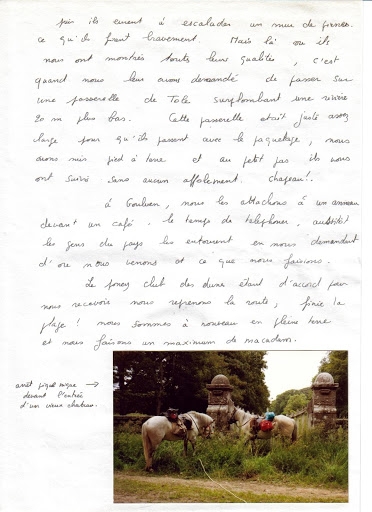 puis ils eurent à escalader un mur de pierres
ce qu'ils firent bravement. Mais là où ils
nous ont montrés toute leurs qualités, c'est
quand nous leur avons demandé de passer sur
une passerelle de Tole surplombant une rivière
20 m plus bas. Cette passerelle etait juste assez
large pour qu'ils passent avec le paquetage, nous
avons mis pied à terre et au petit pas ils nous
ont suivis sans aucun affolement. chapeau!.
à Goulien, nous les attachons à un anneau
devant un café, le temps de telephoner, aussitôt
les gens du pays les entourent en nous demandant
d'ou nous venons et ce que nous faisions.
Le poney club des dunes étant d'accord pour
nous recevoir nous reprenons la route, finie la
plage! nous sommes à nouveau en pleine terre
et nous faisons un maximum de macadam.
arrêt pique nique →
devant l'entrée
d'un vieux chateau.